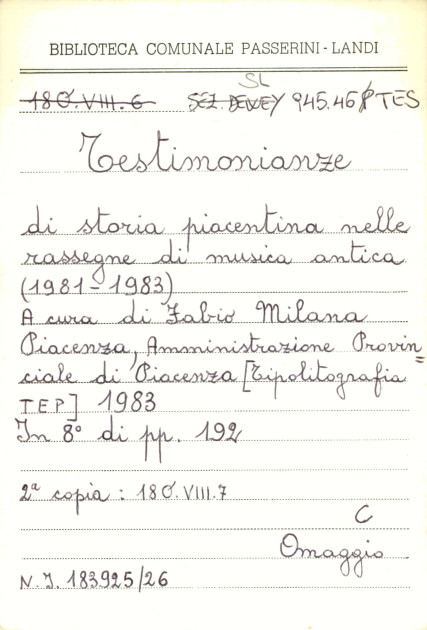 BIBLIOTECA COMUNALE PASSERINI - LANDI
SL
180.VIII.6 SEZ. DEWEY 945.46 TES
Testimonianze
di storia piacentina nelle
rassegne di musica antica
(1981-1983)
A cura di Fabio Milana
Piacenza, Amministrazione Provin=
ciale di Piacenza [Tipolitografia
TEP] 1983
In 8° di pp. 192
2ª copia : 180.VIII.7
C
Omaggio
N.I. 183925/26